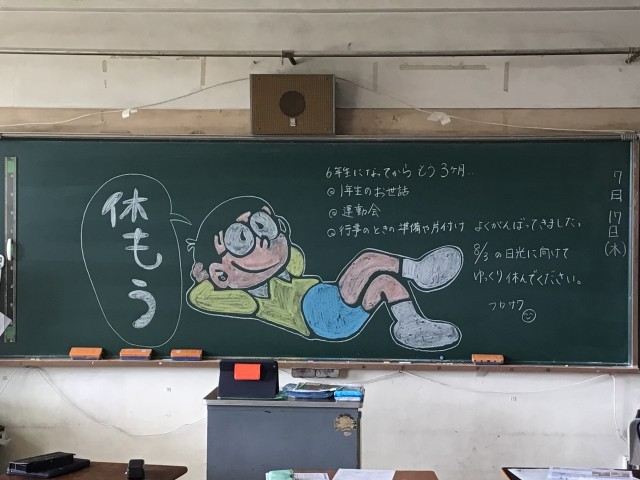 休もう
6年生になってから もう3ヶ月..
@1年生のお世話
@運動会
@行事のときの準備や片付け よくがんばってきました。
8/3の日光に向けて
ゆっくり休んでください。
7月17日(木)